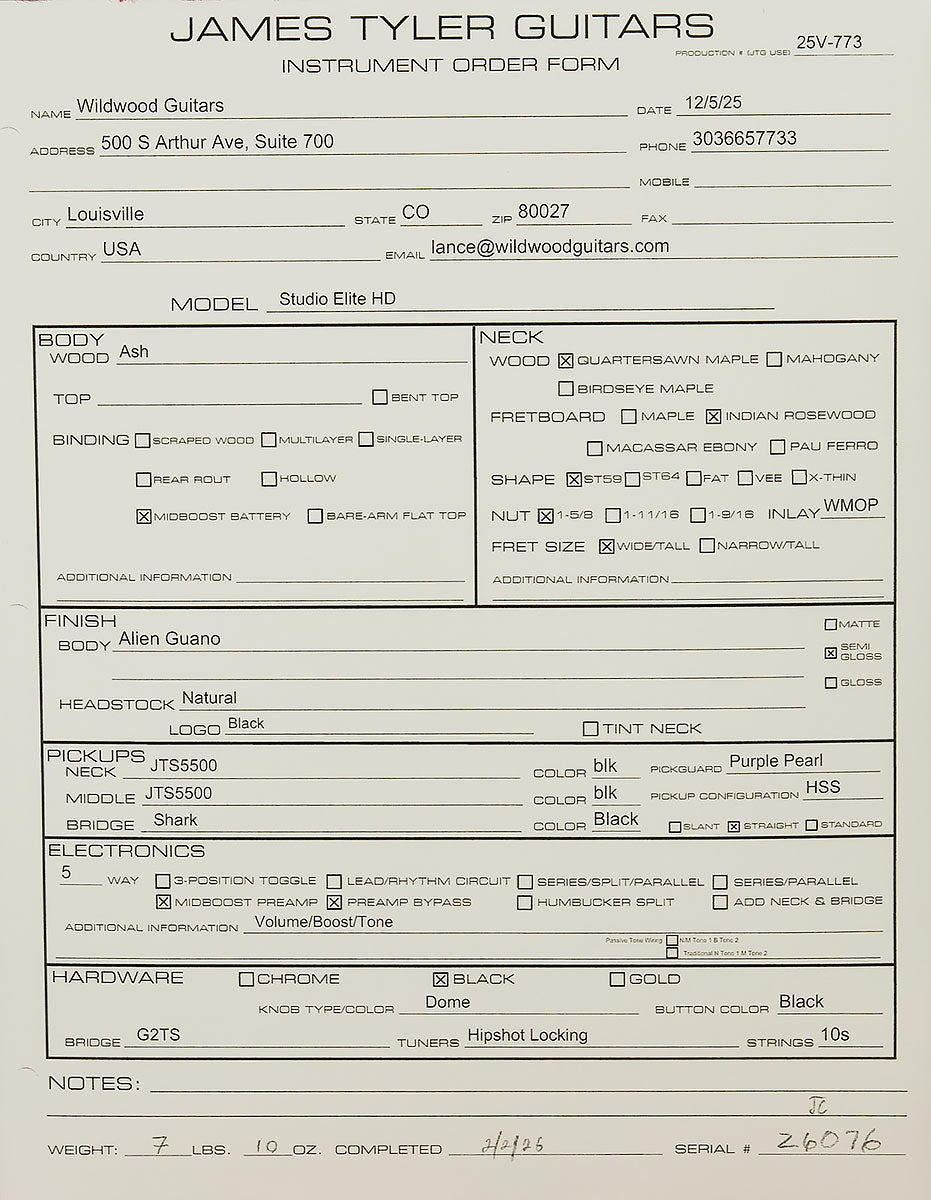 JAMES TYLER GUITARS
PRODUCTION # (JTG USE) 25V-773
INSTRUMENT ORDER FORM
NAME Wildwood Guitars DATE 12/5/25
ADDRESS 500 S Arthur Ave, Suite 700 PHONE 3036657733
MOBILE
CITY Louisville STATE CO ZIP 80027 FAX
COUNTRY USA EMAIL lance@wildwoodguitars.com
MODEL Studio Elite HD
BODY
WOOD Ash
TOP ☐ BENT TOP
BINDING ☐ SCRAPED WOOD ☐ MULTILAYER ☐ SINGLE-LAYER
☐ REAR ROUT ☐ HOLLOW
☒ MIDBOOST BATTERY ☐ BARE-ARM FLAT TOP
ADDITIONAL INFORMATION
NECK
WOOD ☒ QUARTERSAWN MAPLE ☐ MAHOGANY
☐ BIRDSEYE MAPLE
FRETBOARD ☐ MAPLE ☒ INDIAN ROSEWOOD
☐ MACASSAR EBONY ☐ PAU FERRO
SHAPE ☒ ST59 ☐ ST64 ☐ FAT ☐ VEE ☐ X-THIN
NUT ☒ 1-5/8 ☐ 1-11/16 ☐ 1-9/16 INLAY WMOP
FRET SIZE ☒ WIDE/TALL ☐ NARROW/TALL
ADDITIONAL INFORMATION
FINISH
BODY Alien Guano
☐ MATTE
☒ SEMI GLOSS
☐ GLOSS
HEADSTOCK Natural
LOGO Black ☐ TINT NECK
PICKUPS
NECK JTS5500 COLOR blk PICKGUARD Purple Pearl
MIDDLE JTS5500 COLOR blk PICKUP CONFIGURATION HSS
BRIDGE Shark COLOR Black ☐ SLANT ☒ STRAIGHT ☐ STANDARD
ELECTRONICS
5 WAY ☐ 3-POSITION TOGGLE ☐ LEAD/RHYTHM CIRCUIT ☐ SERIES/SPLIT/PARALLEL ☐ SERIES/PARALLEL
☒ MIDBOOST PREAMP ☒ PREAMP BYPASS ☐ HUMBUCKER SPLIT ☐ ADD NECK & BRIDGE
ADDITIONAL INFORMATION Volume/Boost/Tone
Passive Tone Wiring ☐ N/M Tone 1 B Tone 2
☐ Traditional N Tone 1 M Tone 2
HARDWARE ☐ CHROME ☒ BLACK ☐ GOLD
KNOB TYPE/COLOR Dome BUTTON COLOR Black
BRIDGE G2TS TUNERS Hipshot Locking STRINGS 10s
NOTES:
JC
WEIGHT: 7 LBS. 10 OZ. COMPLETED 2/2/26 SERIAL # 26076